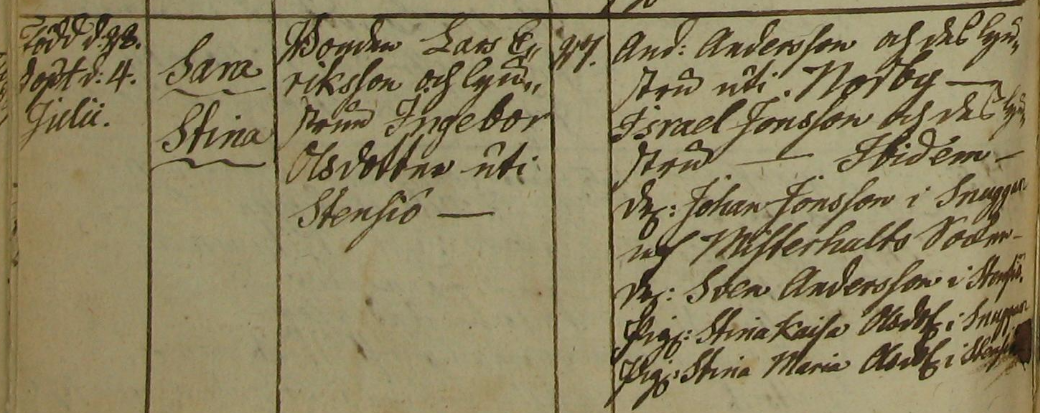 Född d: 28.
döpt d: 4.
Julii.
Sara
Stina
Bonden Lars E„
riksson och hust„
strun Ingebor
Olsdotter uti
Stensiö —
27.
And: Andersson och des hu„
stru uti Norby —
Israel Jonsson och des hu„
stru — Ibidem —
Dr: Johan Jonsson i Snuggan
uti Misterhults Sockn—
Dr: Sven Andersson i Stensiö.
Pig: Stina Kaisa Olsdr i Snuggan
Pig: Stina Maria Olsdr i Stensiö